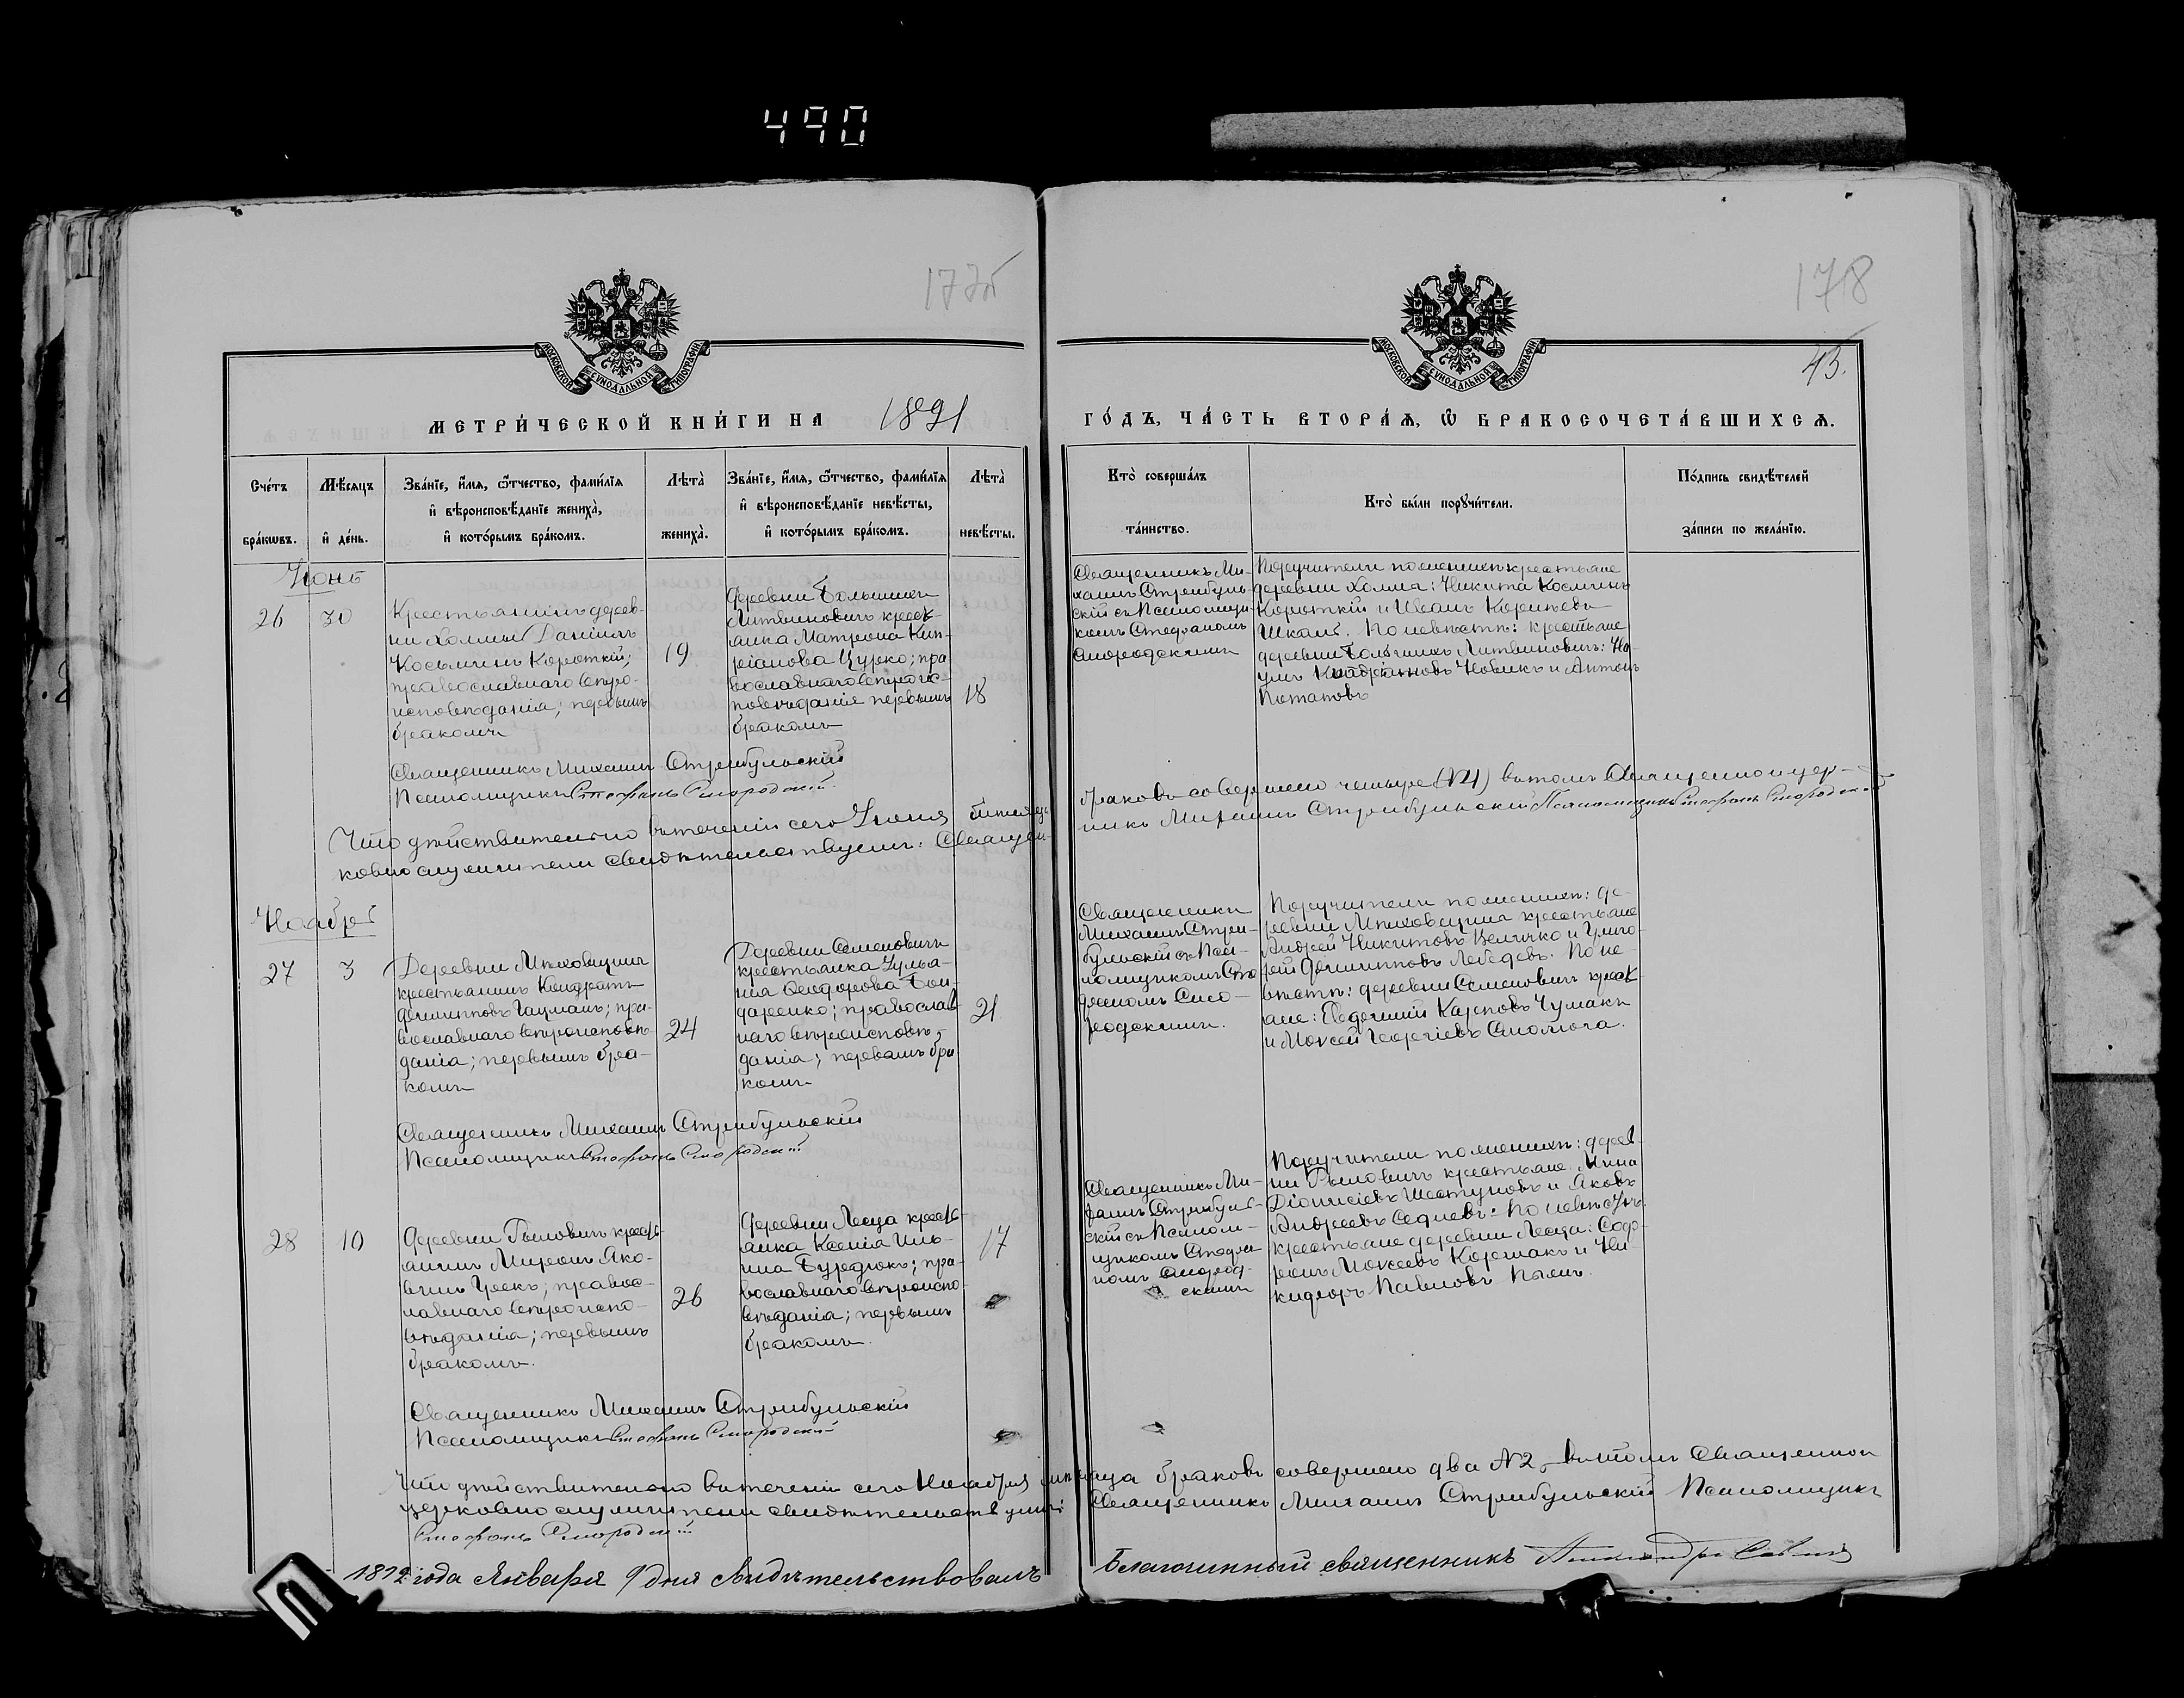 490
177об
178
43.
МОСКОВСКОЙ СУНОДАЛЬНОЙ ТИПОГРАФІИ
МОСКОВСКОЙ СУНОДАЛЬНОЙ ТИПОГРАФІИ
МЕТРИ́ЧЕСКОЙ КНИ́ГИ НА 1891
ГО́ДЪ, ЧА́СТЬ ВТОРА́Ѧ, Ѽ БРАКОСОЧЕТА́ВШИХСѦ.
Сче́тъ
бра́кѡвъ.
Мѣ́сяцъ
и҆ де́нь.
Зва́нїе, и҆́мя, ѻ҆́тчество, фами́лїя
и҆ вѣроисповѣ́данїе жениха̀,
и҆ кото́рымъ бра́комъ.
Лѣта̀
жениха̀.
Зва́нїе, и҆́мя, ѻ҆́тчество, фами́лїя
и҆ вѣроисповѣ́данїе невѣ́сты,
и҆ кото́рымъ бра́комъ.
Лѣта̀
невѣ́сты.
Кто̀ соверша́лъ
та́инство.
Кто̀ бы́ли порꙋчи́тели.
По́дпись свидѣ́телей
за́писи по жела́нїю.
Іюнь
26
30
Крестьянинъ дерев-
ни Холмы Даніилъ
Косьминъ Короткій;
православнаго вѣро-
исповѣданія; первымъ
бракомъ
19
Деревни Большихъ
Литвиновичъ крест-
янка Матрона Кип-
ріанова Цурко; пра-
вославнаго вѣроис-
повѣданія первымъ
бракомъ
18
Священникъ Ми-
хаилъ Стрибуль-
скій съ Псаломщи-
комъ Стефаномъ
Смородскимъ
Поручители по женихѣ крестьяне
деревни Холма: Никита Косьминъ
Короткій и Иванъ Корнѣевъ
По невѣстѣ: крестьяне
деревни Большихъ Литвиновичъ: На-
умъ Новикъ и Антонъ
Потаповъ
Священникъ Михаилъ Стрибульскій
Псаломщикъ Стефанъ Смородскій
Что дѣйствительно въ теченіи сего Іюня мѣсяца
браковъ совершено четыре (№4) въ томъ Священно и цер-
ковно служители свидѣтельствуемъ: Священ-
никъ Михаилъ Стрибульскій Псаломщикъ Стефанъ Смородскій
Ноябрь
27
3
Деревни Мѣховщины
крестьянинъ Кондратъ
Филипповъ Гауманъ; пра-
вославнаго вѣроисповѣ-
данія; первымъ бра-
комъ
24
Деревни Семеновичъ
крестьянка Улья-
на Ѳеодорова Бон-
даренко; православ-
наго вѣроисповѣ-
данія; первымъ бра-
комъ
21
Священникъ
Михаилъ Стри-
бульскій съ Пса-
ломщикомъ Сте-
фаномъ Смо-
родскимъ.
Поручители по женихѣ: де-
ревни Мѣховщины крестьяне
Андрей Никитовъ Величко и Григо-
рій Филипповъ Лебедевъ. По не-
вѣстѣ: деревни Семеновичъ крест-
яне: Евфимій Карповъ Чумакъ
и Моисей Георгіевъ Смоляга.
Священникъ Михаилъ Стрибульскій
Псаломщикъ Стефанъ Смородскій
28
10
Деревни Рыловичъ кресть-
янинъ Миронъ Яко-
влевъ Грекъ; правос-
лавнаго вѣроиспо-
вѣданія; первымъ
бракомъ.
26
Деревни Леща кресть-
янка Ксенія Иль-
ина Бурдюкъ; пра-
вославнаго вѣроиспо-
вѣданія; первымъ
бракомъ.
17
Священникъ Ми-
хаилъ Стрибуль-
скій съ Псалом-
щикомъ Стефа-
номъ Смород-
скимъ
Поручители по женихѣ: дерев-
ни Рыловичъ крестьяне Мина
Діонисіевъ Шестуновъ и Яковъ
Андреевъ Седневъ. По невѣстѣ:
крестьяне деревни Леща: Софо-
ронъ Моисеевъ Коршакъ и Ни-
кифоръ Павловъ
Священникъ Михаилъ Стрибульскій
Псаломщикъ Стефанъ Смородскій
Что дѣйствительно въ теченіи сего Ноября мѣсяца браковъ совершено два №2, въ томъ Священно и
церковно служители свидѣтельствуемъ: Священникъ Михаилъ Стрибульскій Псаломщикъ
Стефанъ Смородскій
1892 года Января 9 дня свидѣтельствовалъ Благочинный священникъ Александръ